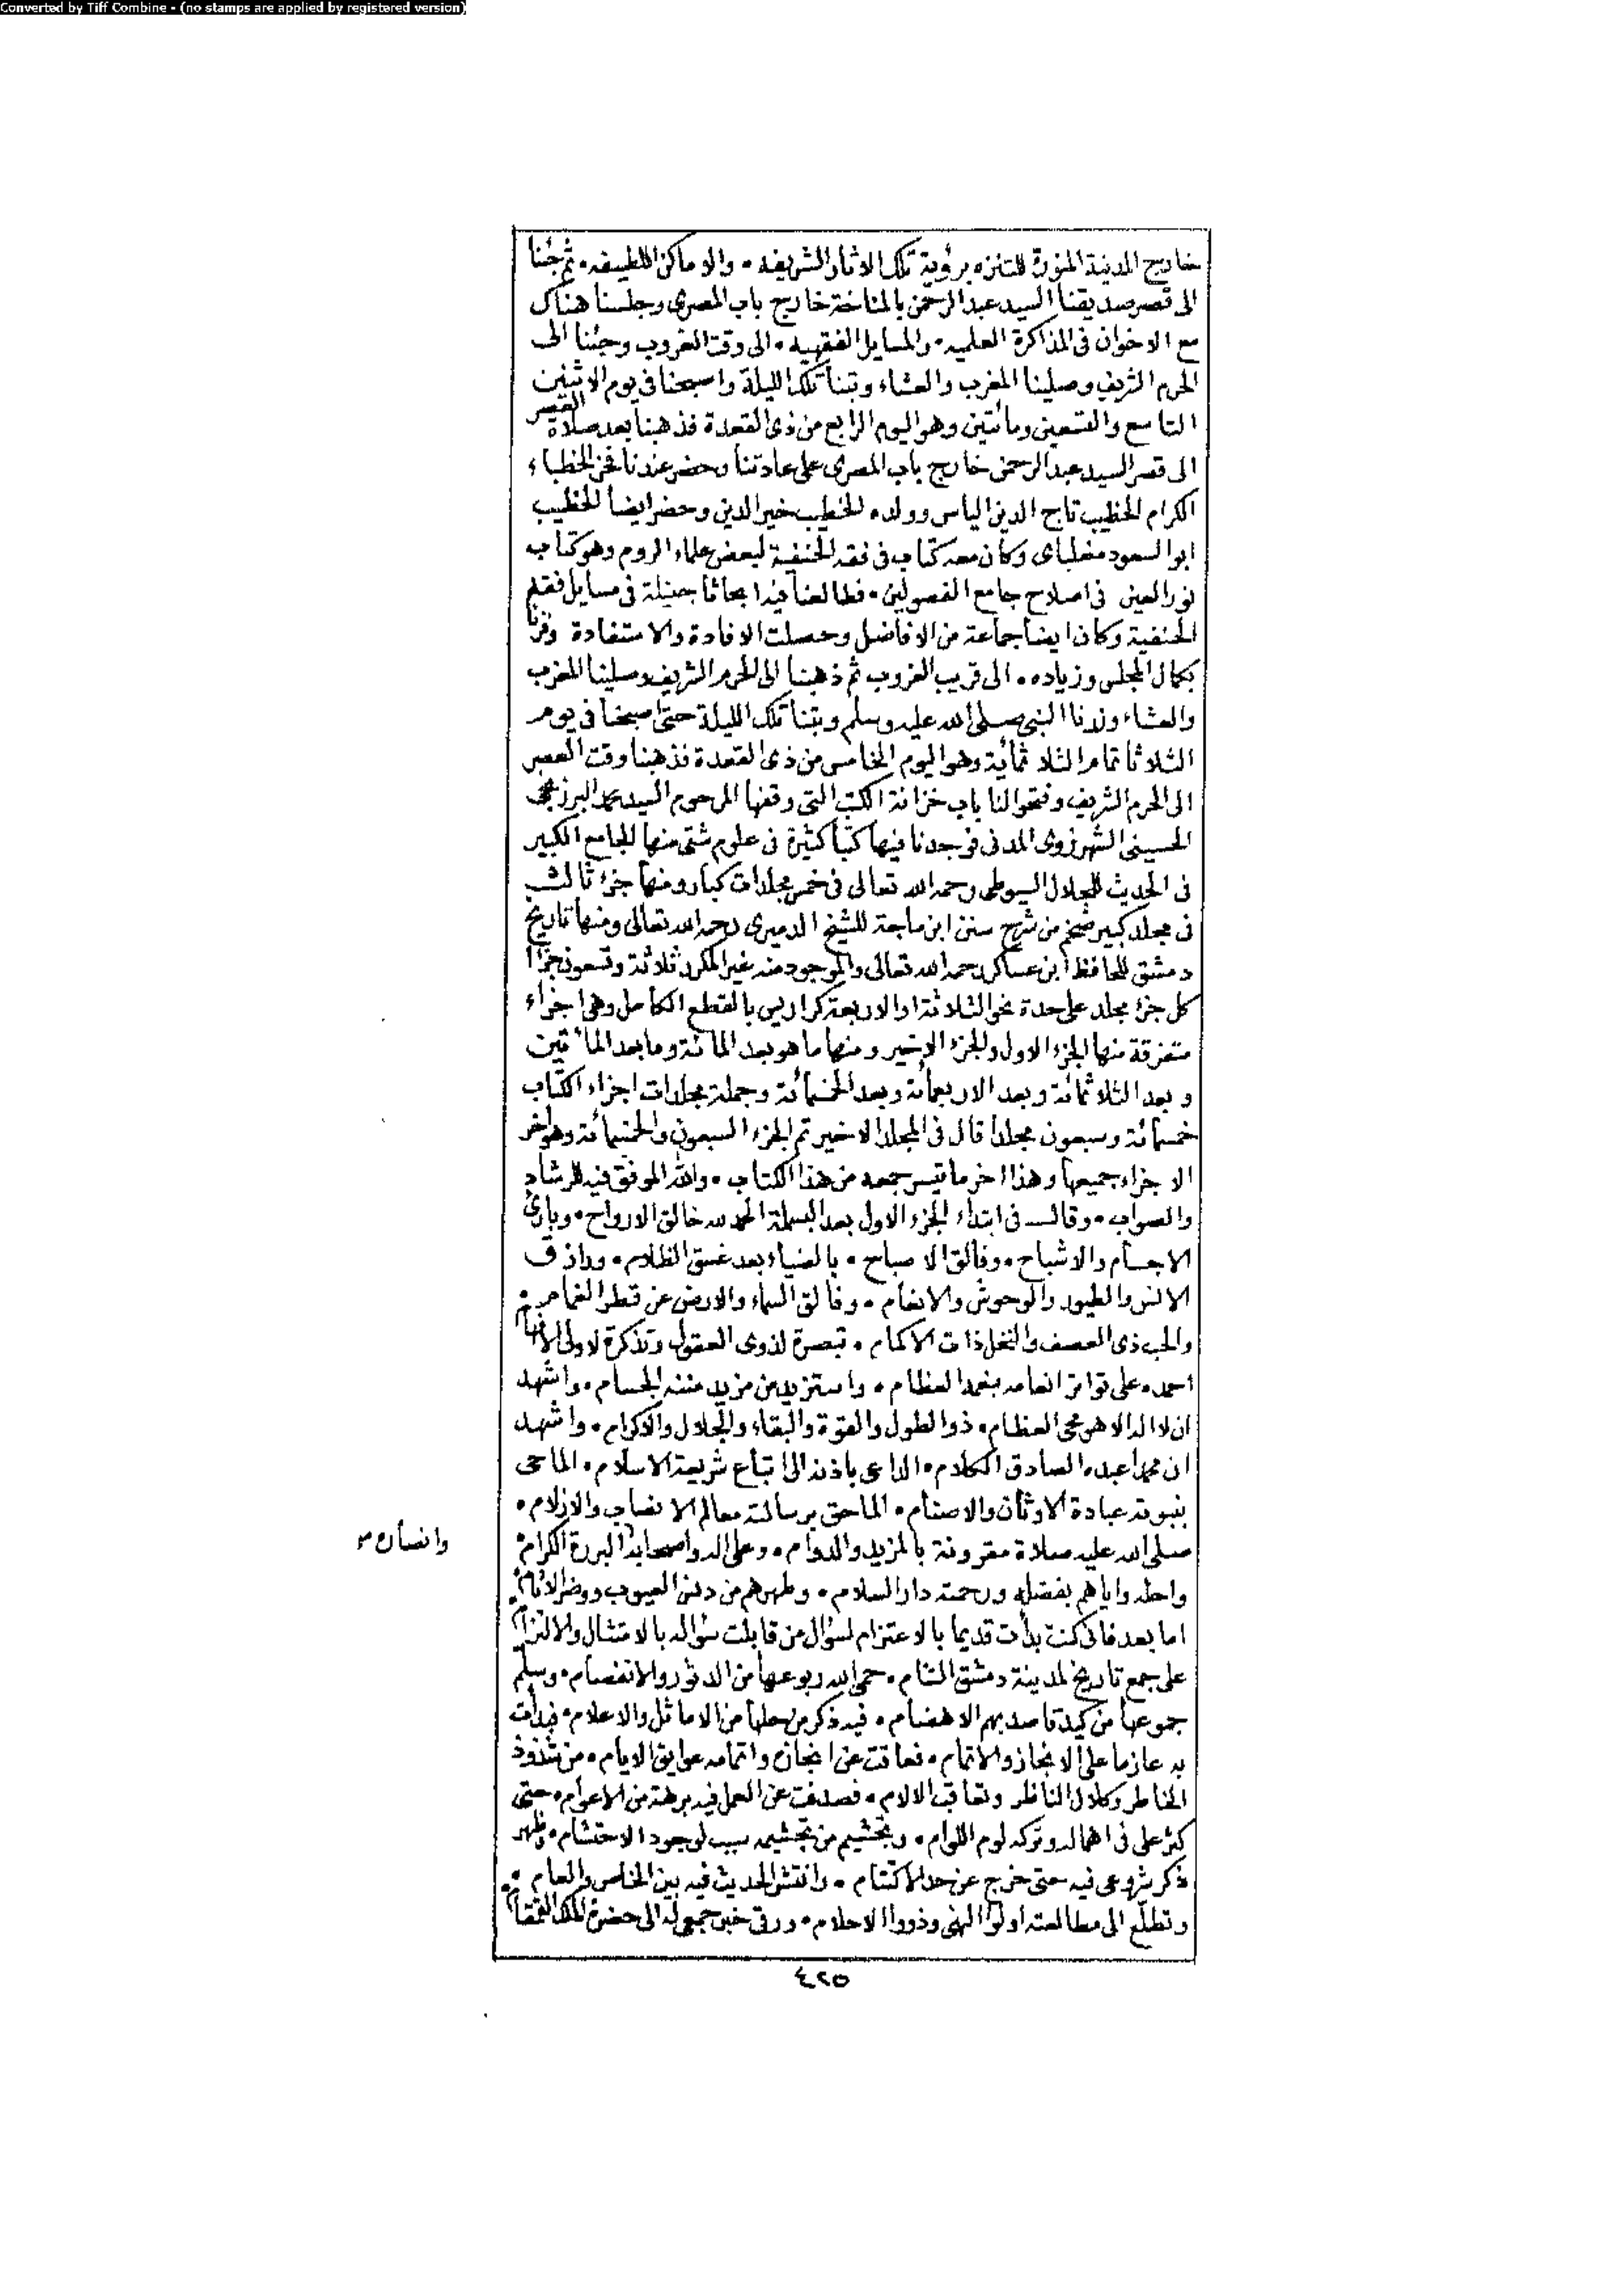 Converted by Tiff Combine - (no stamps are applied by registered version)
خارج المدينة المنورة للتنزه برؤية تلك الاثار الشريفه • والاماكن اللطيفه • ثم جئنا
الى قصر صديقنا السيد عبد الرحمن بالمناخة خارج باب المصرى وجلسنا هناك
مع الاخوان فى المذاكرة العلميه • والمسايل الفقهيه • الى وقت الغروب وجئنا الى
الحرم الشريف وصلينا المغرب والعشاء وبتنا تلك الليلة واصبحنا فى يوم الاثنين
التاسع والتسعين ومائتين وهو اليوم الرابع من ذى القعدة فذهبنا بعد صلاة العصر
الى قصر السيد عبد الرحمن خارج باب المصرى على عادتنا وحضر عندنا فخر الخطباء
الكرام الخطيب تاج الدين الياس وولده الخطيب خير الدين وحضر ايضا الخطيب
ابو السعود مغلباى وكان معه كتاب فى فقه الحنفية لبعض علماء الروم وهو كتاب
نور العين فى اصلاح جامع الفصولين • فطالعنا فيه ابحاثا جميلة فى مسايل فقه
الحنفية وكان ايضا جماعة من الافاضل وحصلت الافادة والاستفادة وفزنا
بكمال المجلس وزياده • الى قريب الغروب ثم ذهبنا الى الحرم الشريف وصلينا المغرب
والعشاء وزرنا النبى صلى الله عليه وسلم وبتنا تلك الليلة حتى اصبحنا فى يوم
الثلاثا تمام الثلاثمائة وهو اليوم الخامس من ذى القعدة فذهبنا وقت العصر
الى الحرم الشريف وفتحوا لنا باب خزانة الكتب التى وقفها المرحوم السيد محمد البرزنجى
الحسينى الشهرزورى المدنى فوجدنا فيها كتبا كثيرة فى علوم شتى منها الجامع الكبير
فى الحديث للجلال السيوطى رحمه الله تعالى فى خمس مجلدات كبار ومنها جزء ثالث
فى مجلد كبير ضخم من شرح سنن ابن ماجة للشيخ الدميرى رحمه الله تعالى ومنها تاريخ
دمشق للحافظ ابن عساكر رحمه الله تعالى والموجود منه غير المكرر ثلاثة وتسعون جزأ
كل جزء مجلد على حدة نحو الثلاثة او الاربعة كراريس بالقطع الكامل وهى اجزاء
متفرقة منها الجزء الاول والجزء الاخير ومنها ما هو بعد المائة وما بعد المائتين
وبعد الثلاثمائة وبعد الاربعمائة وبعد الخمسمائة وجملة مجلدات اجزاء الكتاب
خمسمائة وسبعون مجلدا قال فى المجلد الاخير تم الجزء السبعون والخمسمائة وهو آخر
الاجزاء جميعها وهذا اخر ما تيسر جمعه من هذا الكتاب • والله الموفق فيه للرشاد
والصواب • وقال فى ابتداء الجزء الاول بعد البسملة الحمد لله خالق الارواح • وبارئ
الاجسام والاشباح • وفالق الاصباح • بالضياء بعد غسق الظلام • ورازق
الانس والطيور والوحوش والانعام • وفالق السماء والارض عن قطر الغمام
والحب ذى العصف والنخل ذات الاكمام • تبصرة لذوى العقول وتذكرة لاولى الافهام
احمده على تواتر انعامه بنعمه العظام • واستزيده من مزيد مننه الجسام • واشهد
ان لا اله الا هو محى العظام • ذو الطول والقوة والبقاء والجلال والاكرام • واشهد
ان محمدا عبده الصادق الكلام • الداعى باذنه الى اتباع شريعة الاسلام • الماحى
بنبوته عبادة الاوثان والاصنام • الماحق برسالته معالم الانصاب والازلام •
صلى الله عليه صلاة مقرونة بالمزيد والدوام • وعلى اله واصحابه البررة الكرام
واحله واياهم بفضله ورحمته دار السلام • وطهرهم من دنس العيوب ووضر الاثام
اما بعد فانى كنت بدأت قديما بالاعتزام لسؤال من قابلت سؤاله بالامتثال والالتزام
على جمع تاريخ لمدينة دمشق الشام • حمى الله ربوعها من الدثور والانفصام • وسلم
جموعها من كيد قاصديهم الاهضام • فيه ذكر من حلها من الاماثل والاعلام • فبدأت
به عازما على الانجاز والاتمام • فعاقت عن انجازه واتمامه عوايق الايام • من شذوذ
الخاطر وكلال الناظر وتعاقب الالام • فصدفت عن العمل فيه برهة من الاعوام • حتى
كثر على فى اهماله وتركه لوم اللوام • وتحشيم من تحشيمه سبب لوجود الاحتشام • وظهر
ذكر شروعى فيه حتى خرج عن حد الاكتتام • وانتشر الحديث فيه بين الخاص والعام
وتطلع الى مطالعته اولوا النهى وذووا الاحلام • ورقى خبر جمعى له الى حضرة الملك القمقام
٤٢٥